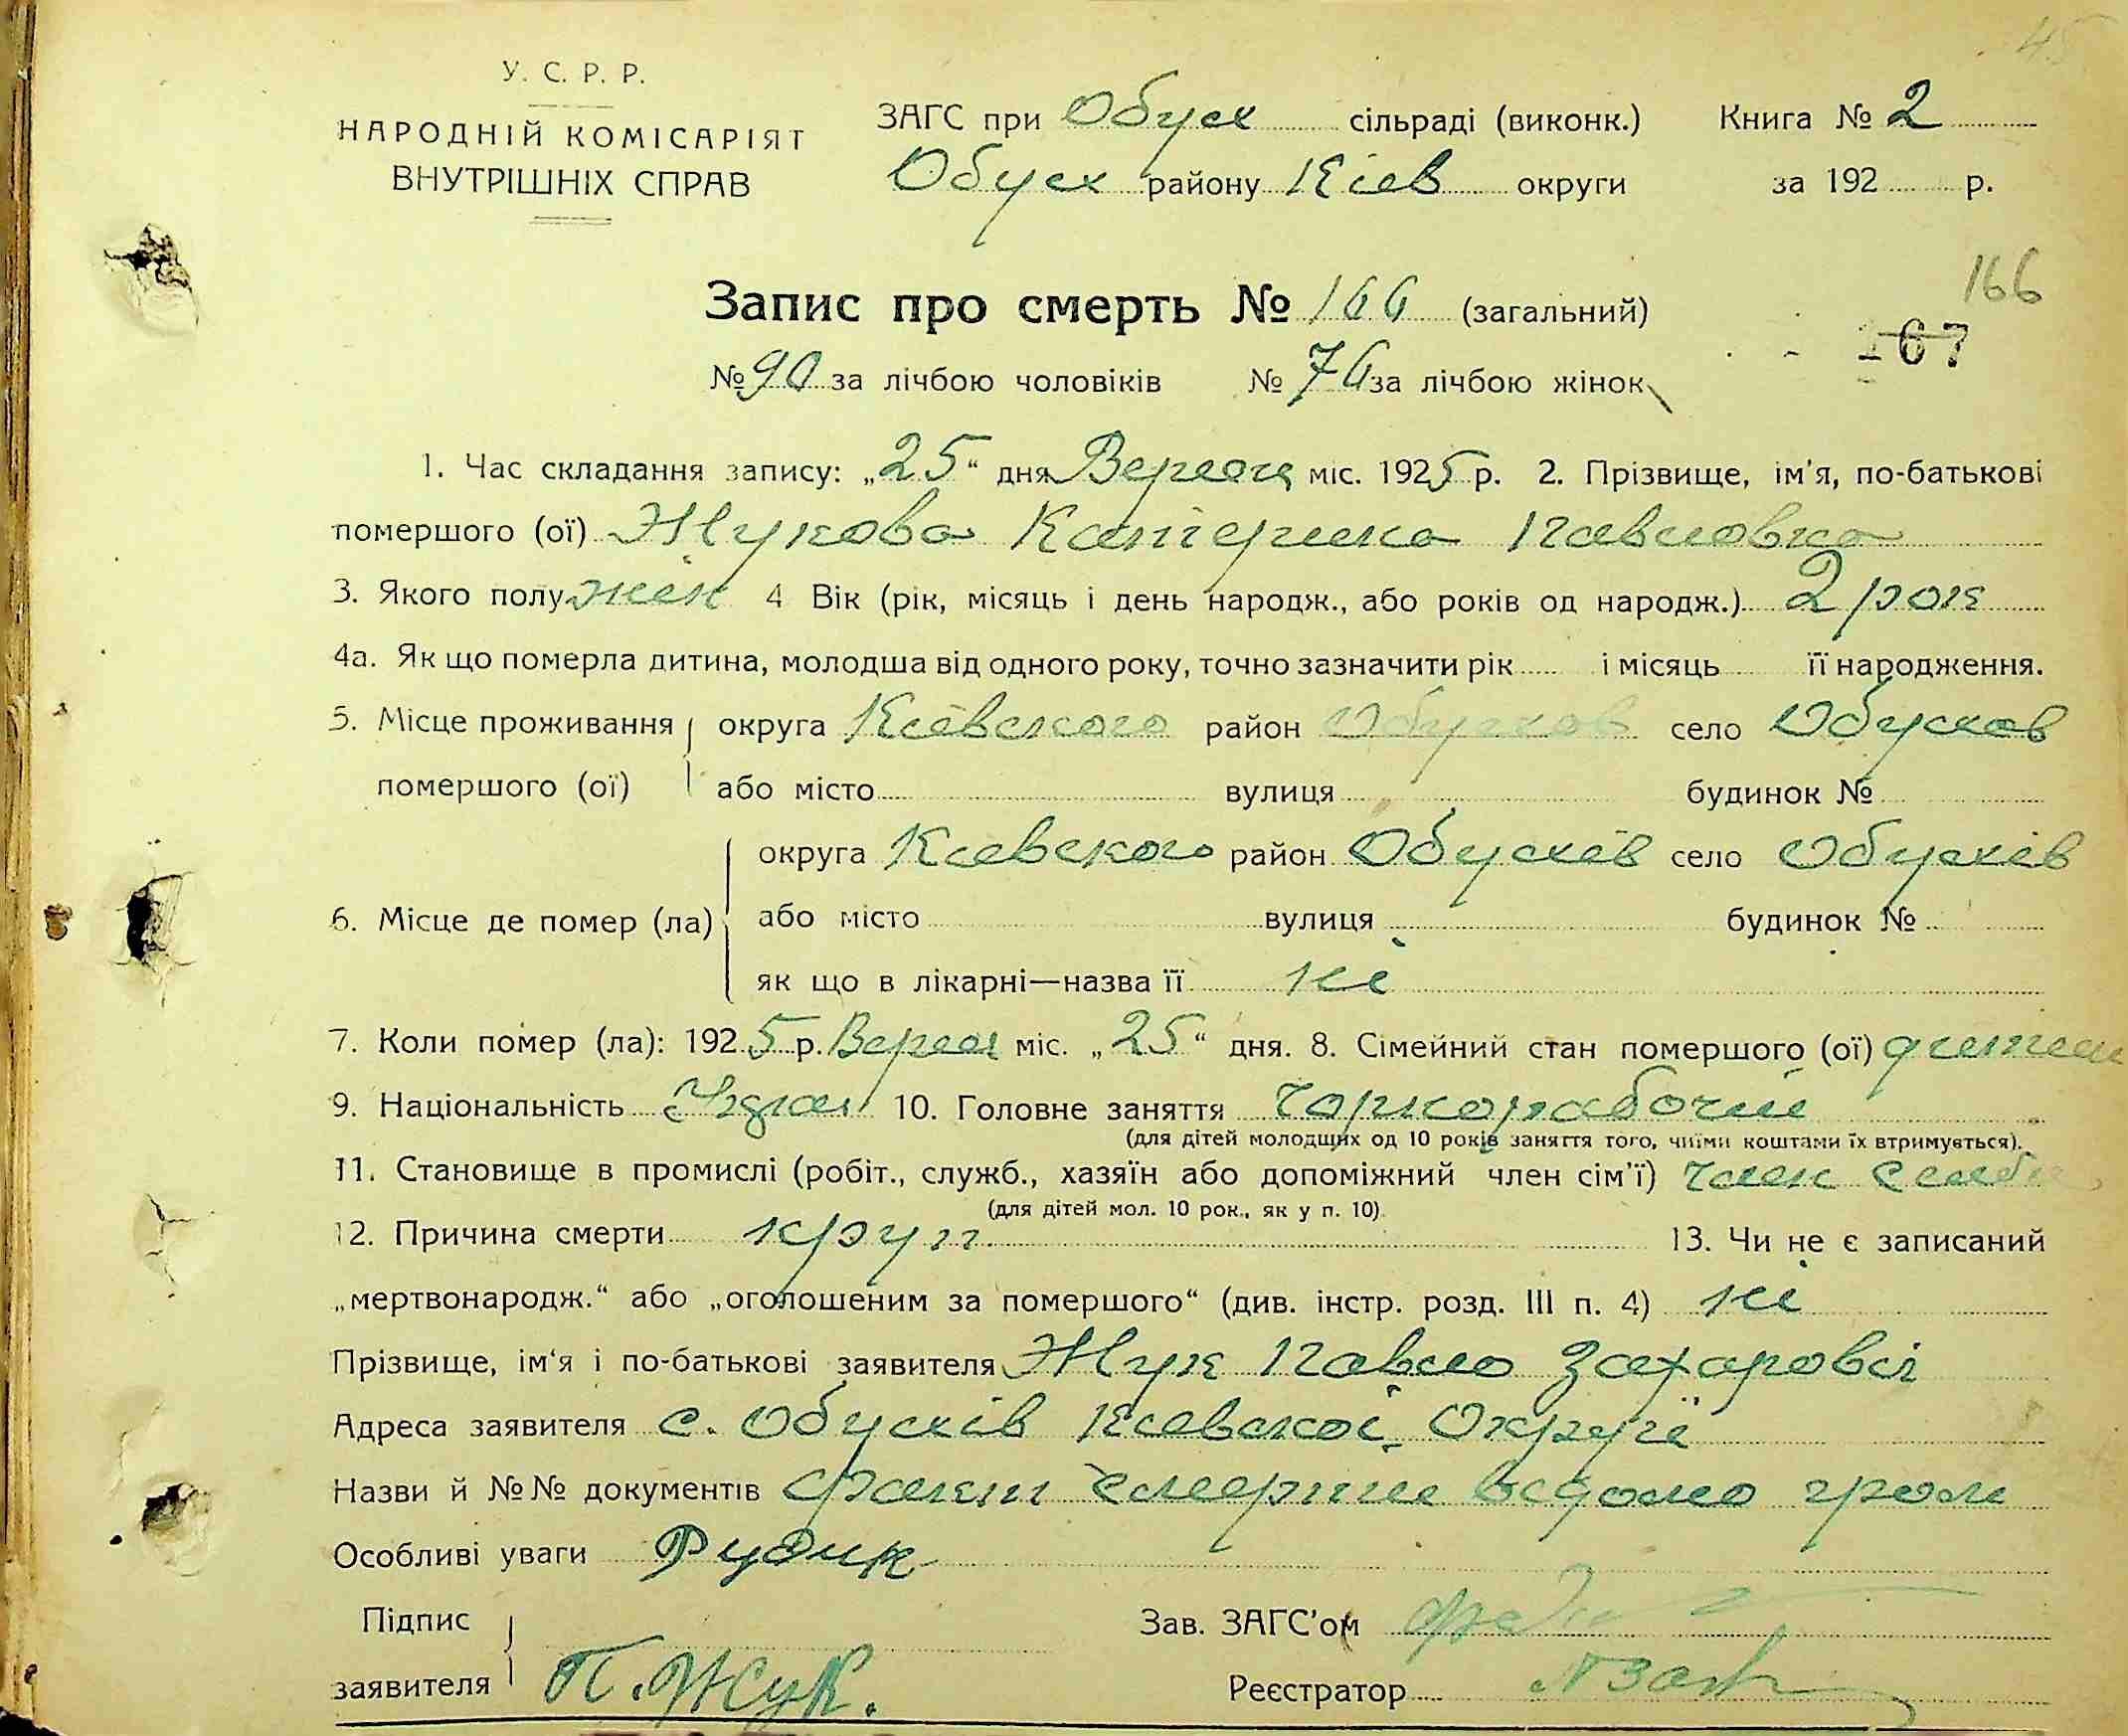 45
У. С. Р. Р.
НАРОДНІЙ КОМІСАРІЯТ
ВНУТРІШНІХ СПРАВ
ЗАГС при Обух сільраді (виконк.) Книга № 2
Обух району Кіев округи за 192 р.
166
Запис про смерть № 166 (загальний)
167
№ 90 за лічбою чоловіків № 76 за лічбою жінок
1. Час складання запису: „25“ дня Вересня міс. 1925 р. 2. Прізвище, ім'я, по-батькові
помершого (ої) Жукова Катерина Павловна
3. Якого полу жін 4 Вік (рік, місяць і день народж., або років од народж.) 2 рок
4а. Як що померла дитина, молодша від одного року, точно зазначити рік і місяць її народження.
5. Місце проживання помершого (ої) округа Киевского район Обухов село Обухов
або місто вулиця будинок №
6. Місце де помер (ла) округа Киевского район Обухів село Обухів
або місто вулиця будинок №
як що в лікарні—назва її ні
7. Коли помер (ла): 1925 р. Верес міс. „25“ дня. 8. Сімейний стан помершого (ої) дитин
9. Національність 10. Головне заняття Чорнорабочий
(для дітей молодщих од 10 років заняття того, чиїми коштами їх втримується).
11. Становище в промислі (робіт., служб., хазяїн або допоміжний член сім'ї) член
(для дітей мол. 10 рок., як у п. 10).
12. Причина смерти круп 13. Чи не є записаний
„мертвонародж.“ або „оголошеним за помершого“ (див. інстр. розд. III п. 4) ні
Прізвище, ім'я і по-батькові заявителя Жук Павло Захарович
Адреса заявителя с. Обухів Киевскоі Округі
Назви й №№ документів факт смерти відомо гром
Особливі уваги Рудик
Підпис заявителя П. Жук.
Зав. ЗАГС'ом
Реєстратор